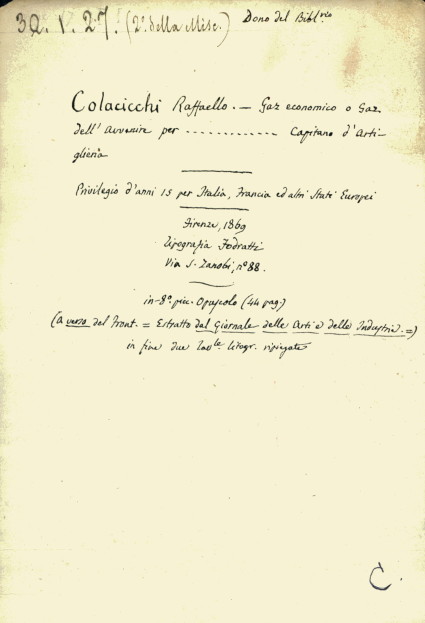 3Q. V. 27. (2ª della Misc.) Dono del Bibl.rio
Colacicchi Raffaello. — Gaz economico o Gaz
dell'Avvenire per ............ Capitano d'Arti-
glieria
Privilegio d'anni 15 per Italia, Francia ed altri Stati Europei
Firenze, 1869
Tipografia Fodratti
Via S. Zanobi, n° 88.
in-8° picc. Opuscolo (44 pag.)
(a verso del Front. = Estratto dal Giornale delle Arti e delle Industrie. =)
in fine due Tavle litogr. ripiegate
C.